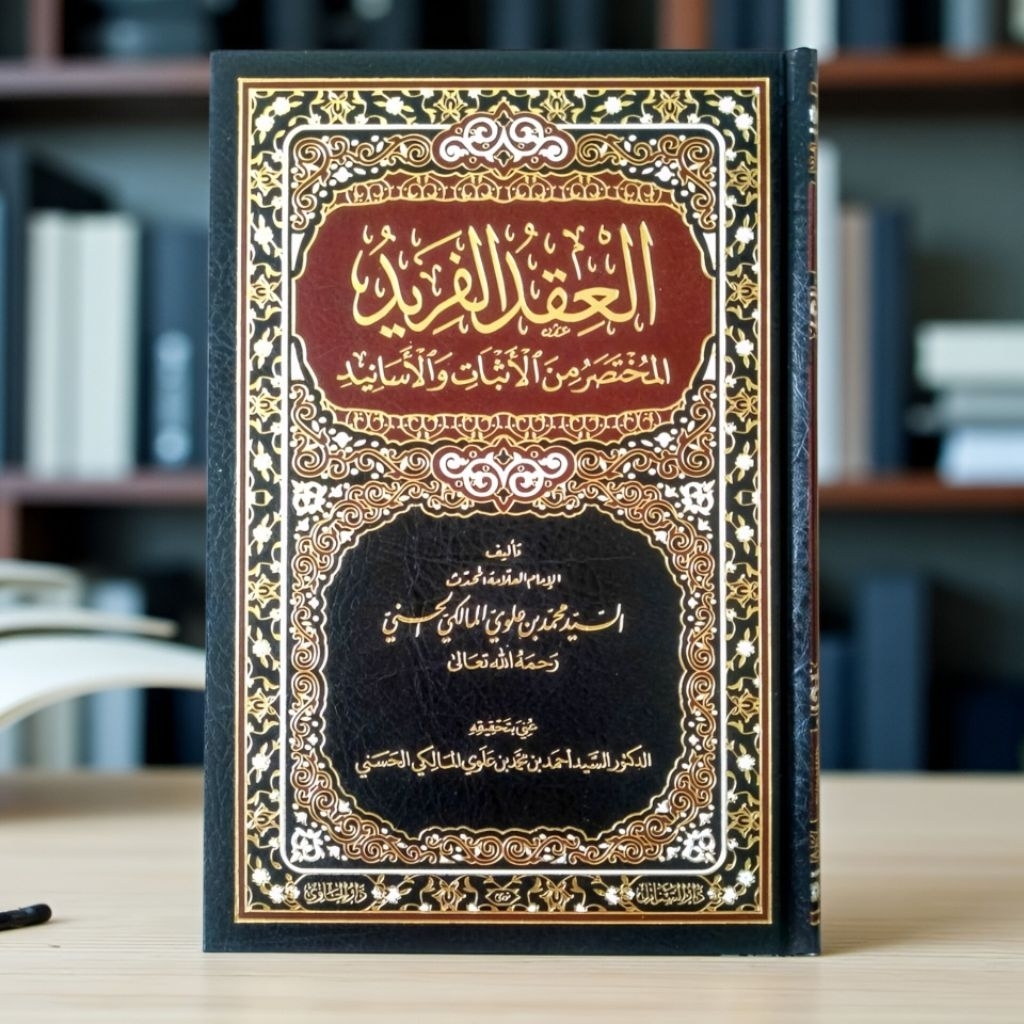 العِقْدُ الفَرِيدُ
المُخْتَصَرُ مِنَ الأَثْبَاتِ وَالأَسَانِيدِ
تأليف
الإمام العلامة المحدث
السيد محمد بن علوي المالكي الحسني
رَحِمَهُ الله تعالى
عُني بتحقيقه
الدكتور السَّيد أحمد بن محمد بن علوي المالكي الحسني